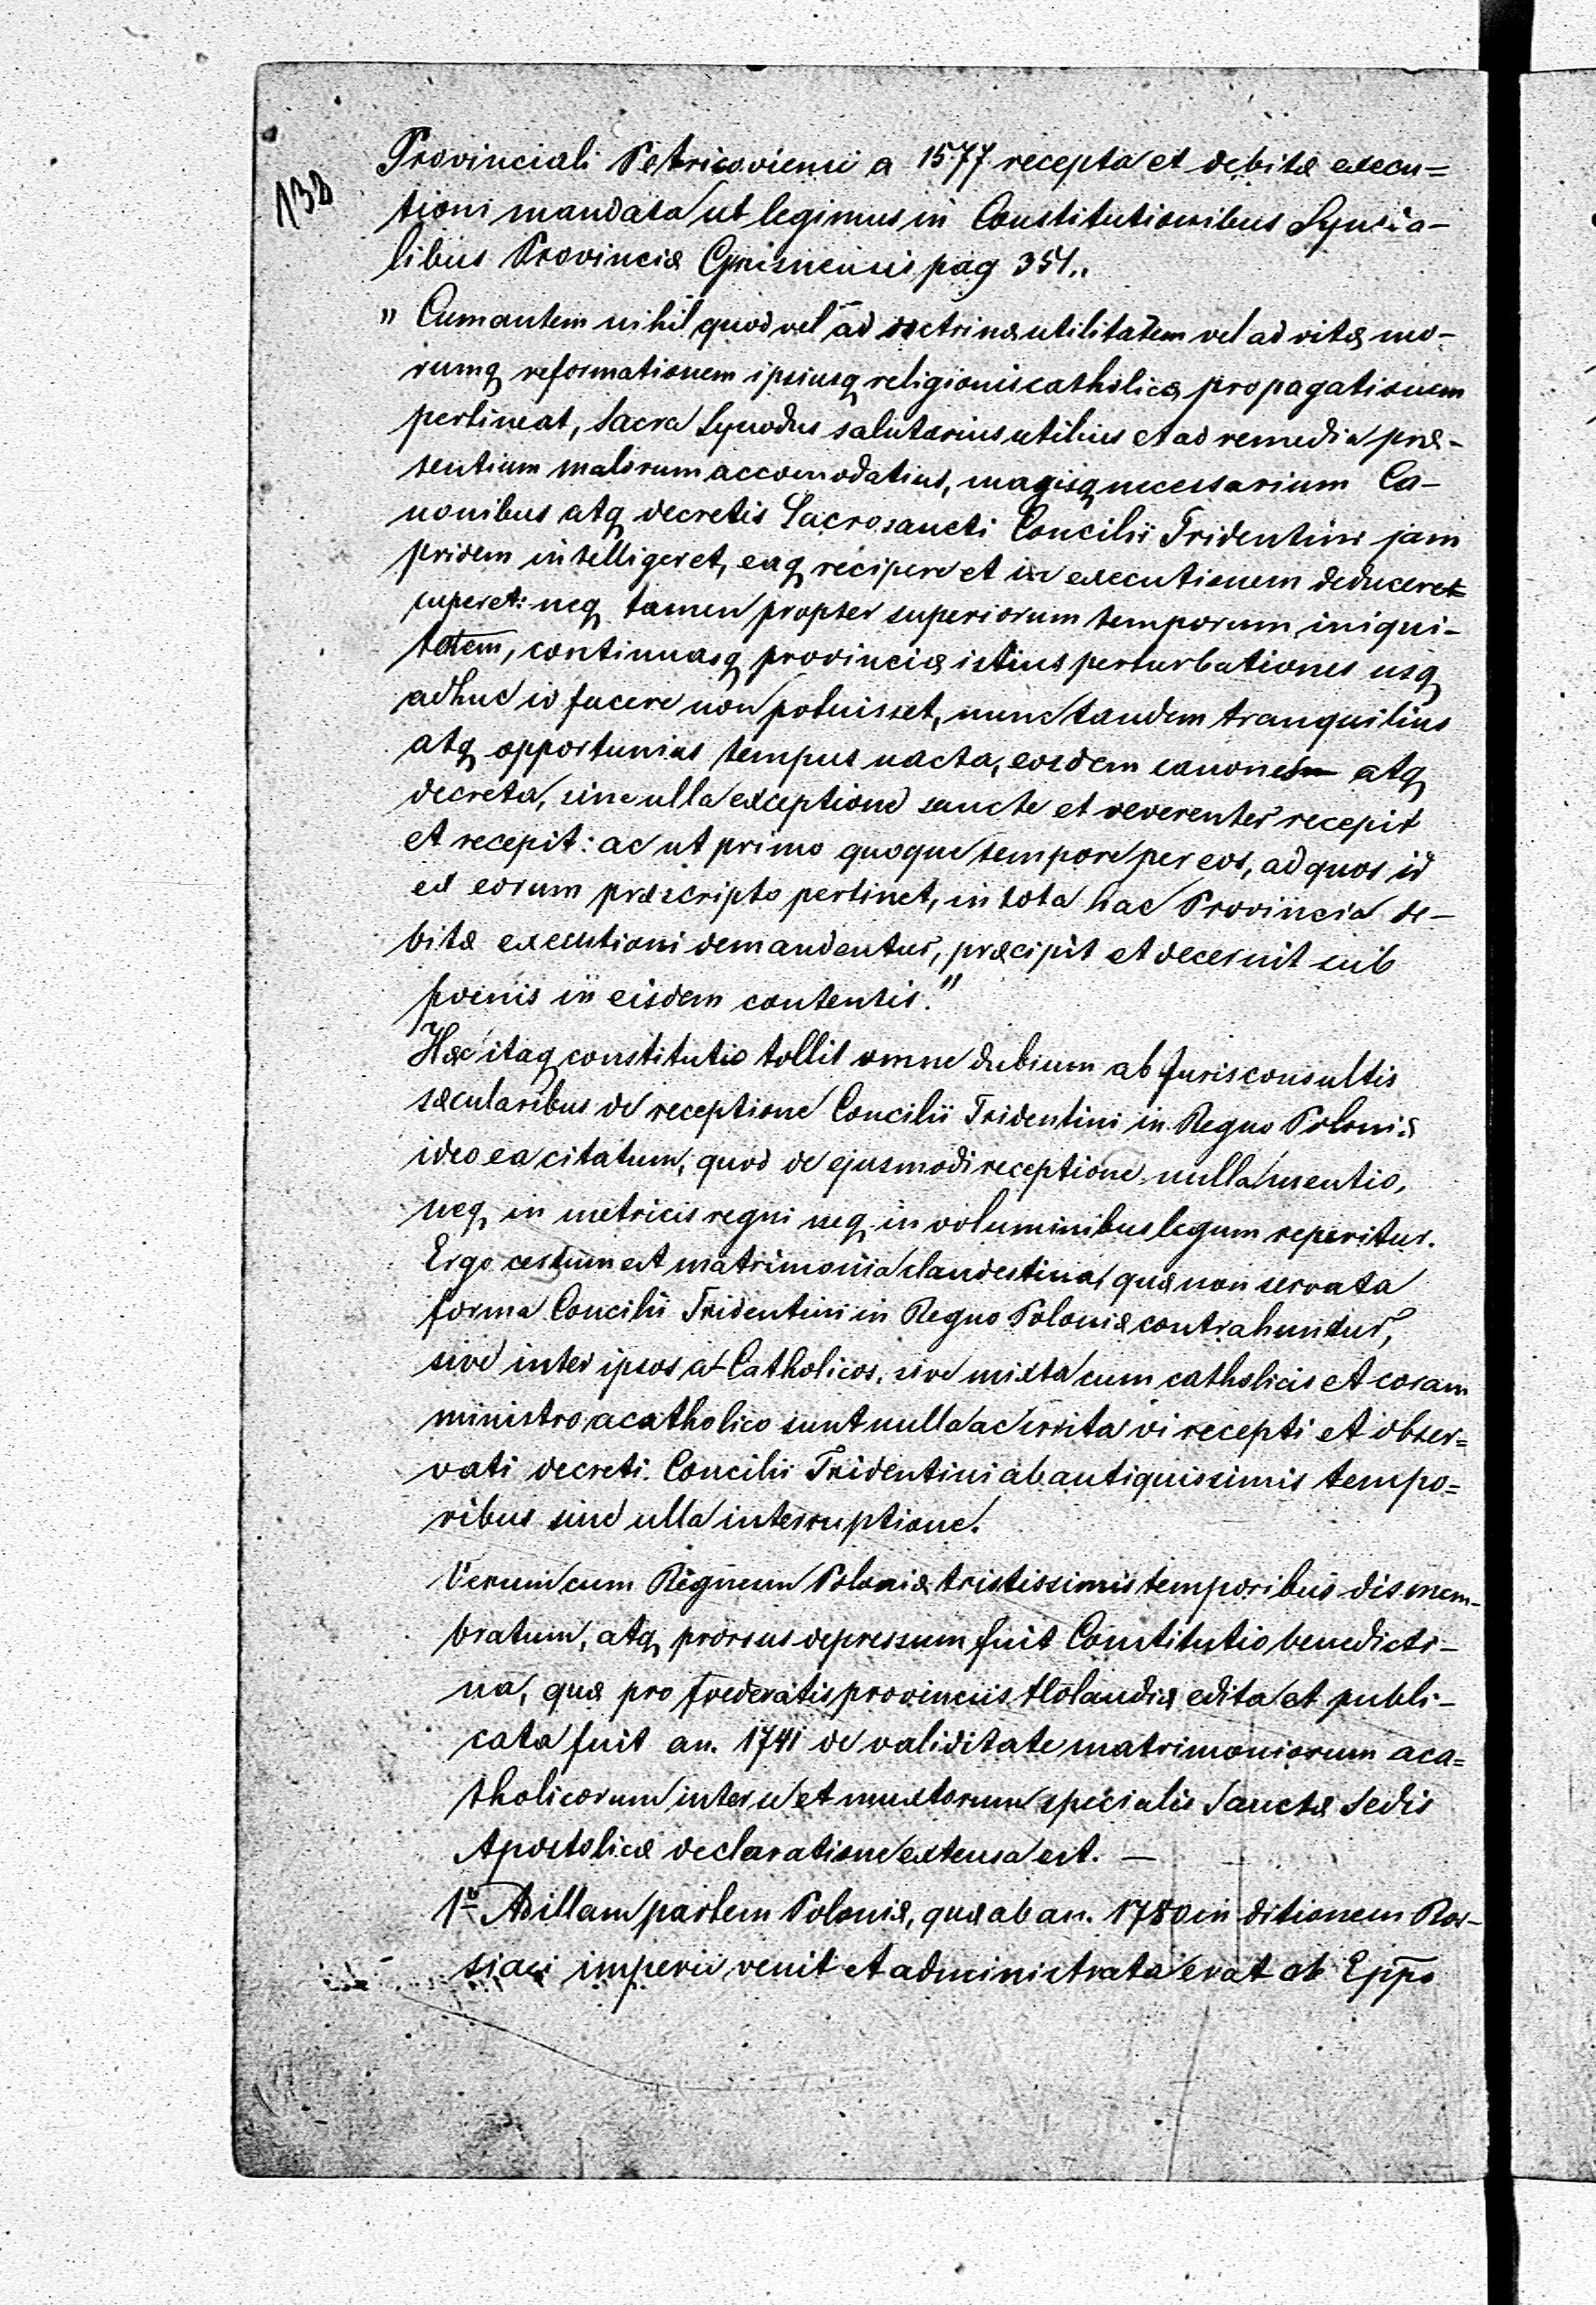 138
Provinciali Petricoviensi a 1577 recepta et debitæ execu=
tioni mandata ut legimus in Constitutionibus Synoda-
libus Provinciæ Gnisnensis pag 351..
" Cum autem nihil quod vel ad doctrinæ utilitatem vel ad vitæ mo-
rumq reformationem ipsiusq religionis catholicæ propagationem
pertineat, Sacra Synodus salutarius utilius et ad remedia præ-
sentium malorum accomodatius, magisq necessarium Ca-
nonibus atq decretis Sacrosancti Concilii Tridentini jam
pridem intelligeret, eaq recipere et in executionem deduceret
cuperet: neq tamen propter superiorum temporum iniqui-
tatem, continuasq provinciæ istius perturbationes usq
adhuc id facere non potuisset, nunc tandem tranquilius
atq opportunius tempus nacta, eosdem canones atq
decreta, sine ulla exceptione sancte et reverenter recepit
et recepit: ac ut primo quoque tempore per eos, ad quos id
ex eorum præscripto pertinet, in tota hac Provincia de-
bitæ executioni demandentur, præcipit et decernit sub
poenis in eisdem contentis."
Hæc itaq constitutio tollit omne dubium ab Jurisconsultis
sæcularibus de receptione Concilii Tridentini in Regno Poloniæ
ideo ea citatum, quod de ejusmodi receptione nulla mentio,
neq in metricis regni neq in voluminibus legum reperitur.
Ergo certum est matrimonia clandestina, quæ non servata
forma Concilii Tridentini in Regno Poloniæ contrahuntur,
sive inter ipsos a-Catholicos, sive mixta cum catholicis et coram
ministro acatholico sunt nulla ac irrita vi recepti et obser=
vati decreti Concilii Tridentini ab antiquissimis tempo=
ribus sine ulla interruptione.
Verum cum Regnum Poloniæ tristissimis temporibus dismem-
bratum, atq prorsus depressum fuit Constitutio benedicti-
na, quæ pro foederatis provinciis Holandiæ edita et publi-
cata fuit an. 1741 de validitate matrimoniorum aca=
tholicorum inter se et mixtorum speciali Sanctæ Sedis
Apostolicæ declaratione extensa est. —
1º Ad illam partem Poloniæ, quæ ab an. 1780 in ditionem Ros-
siaci imperii venit et administrata erat ab Eppo